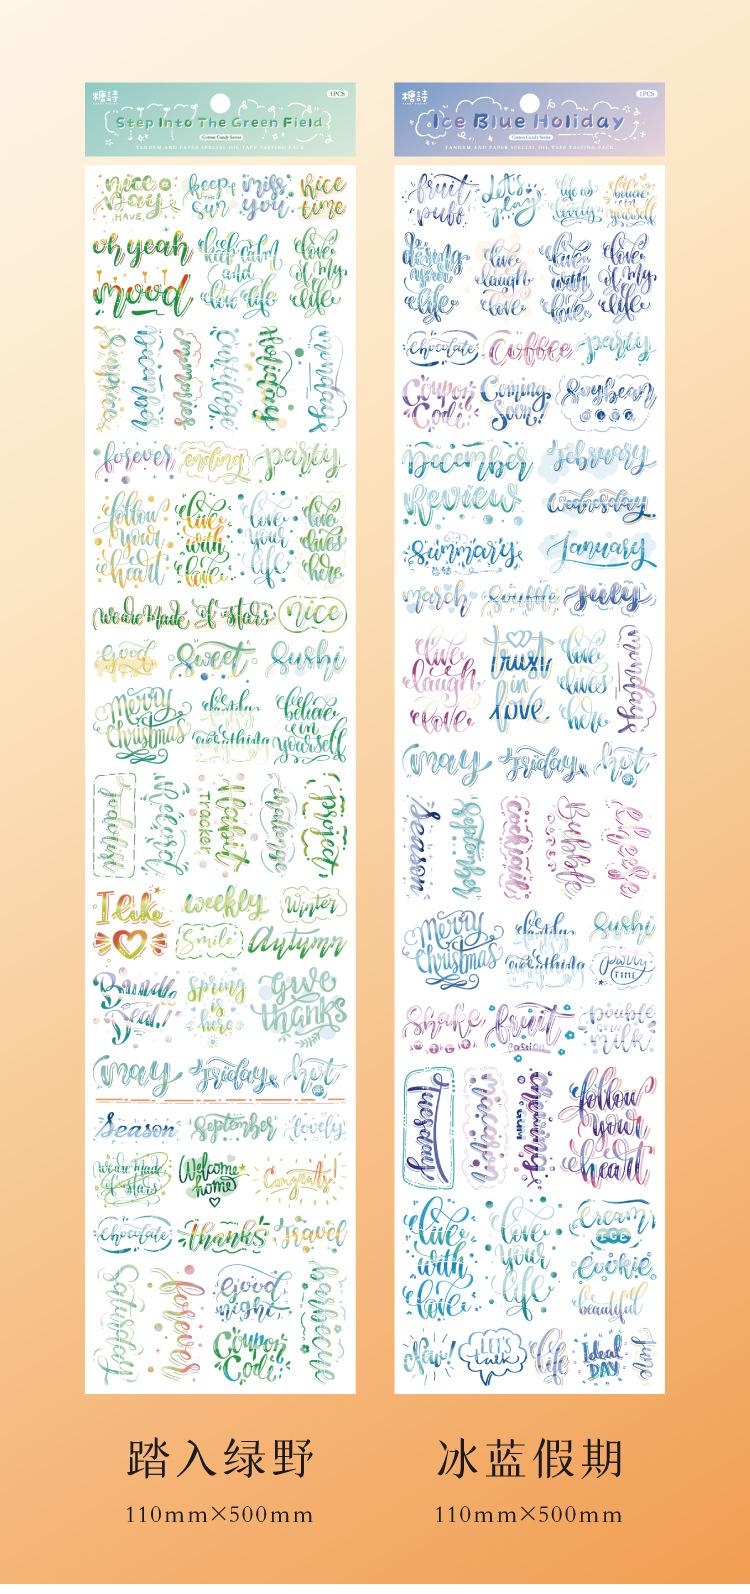 糖詩
1PCS
Step Into The Green Field
Cotton Candy Series
TANDEM AND PAPER SPECIAL OIL TAPE TASTING PACK
nice day
HAVE
keep
the
sun
miss you
nice time
oh yeah
mood
keep calm
and
love life
love
of my
life
December
memories
Holiday
mondays
forever
ending
party
follow
your
heart
live
with
love
love
your
life
love
lives
here
we are made of stars
nice
Good
Sweet
Sushi
Merry
Christmas
believe
in
yourself
Record
Habit
TRACKER
indulge
project
I like
weekly
Winter
Smile
Autumn
Bundle
Deal!
spring
is
here
give
thanks
may
Friday
hot
Season
September
lovely
we are made
of stars
Welcome
home
Congrats!
Chocolate
thanks
travel
Saturday
forever
Good
night
Coupon
Code
barbecue
糖詩
1PCS
Ice Blue Holiday
Cotton Candy Series
TANDEM AND PAPER SPECIAL OIL TAPE TASTING PACK
fruit
puff
Let's
play
life is
lovely
believe
in
yourself
life
live
laugh
love
live
with
love
love
of my
life
Chocolate
Coffee
party
Coupon
Code
Coming
Soon!
Soybean
December
February
Review
Wednesday
Summary
总结
January
march
Souffle
July
live
laugh
love
trust
in
love
love
lives
here
mondays
may
Friday
hot
Season
September
cocktail
Bubble
Cheese
Merry
Christmas
Sushi
party
TIME
Shake
fruit
double
milk
Tuesday
chewing
gum
follow
your
heart
live
with
love
love
your
life
Cream
ICE
Cookie
beautiful
New!
LET'S
talk
life
Ideal
DAY
June
踏入绿野
110mm×500mm
冰蓝假期
110mm×500mm